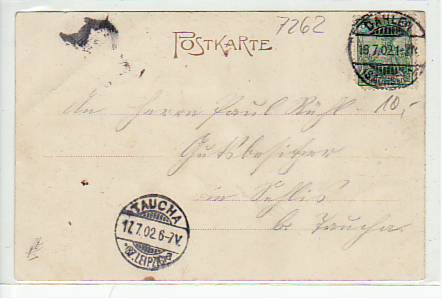 7262
POSTKARTE
DAHLEN
16.7.02.1-2N.
10,-
An Herrn Paul Rühl
Gutsbesitzer
in Sehlis
b. Taucha.
TAUCHA
17.7.02.6-7V.
*(BZ.LEIPZIG)*